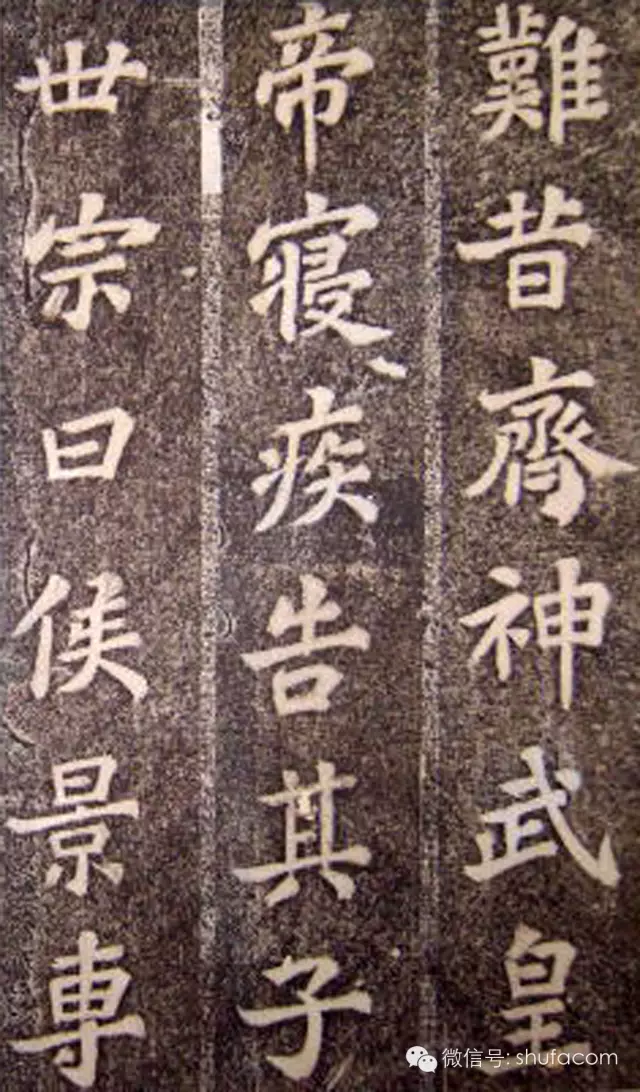 難昔齊神武皇
帝寢疾告其子
世宗曰侯景專
微信号: shufacom